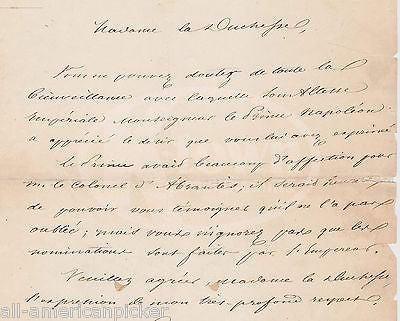 Madame la Duchesse,
Vous ne pouvez doutez de toute la
bienveillance avec laquelle Son Altesse
Impériale Monseigneur le Prince Napoléon
a apprécié le désir que vous lui avez exprimé
Le Prince avait beaucoup d'affection pour
M. le Colonel d'Abrantès, il serait heureux
de pouvoir vous témoigner qu'il ne l'a pas
oublié; mais vous n'ignorez pas que les
nominations sont faites par l'Empereur.
Veuillez agréer, Madame la Duchesse,
l'expression de mon très-profond respect,
all-americanpicker